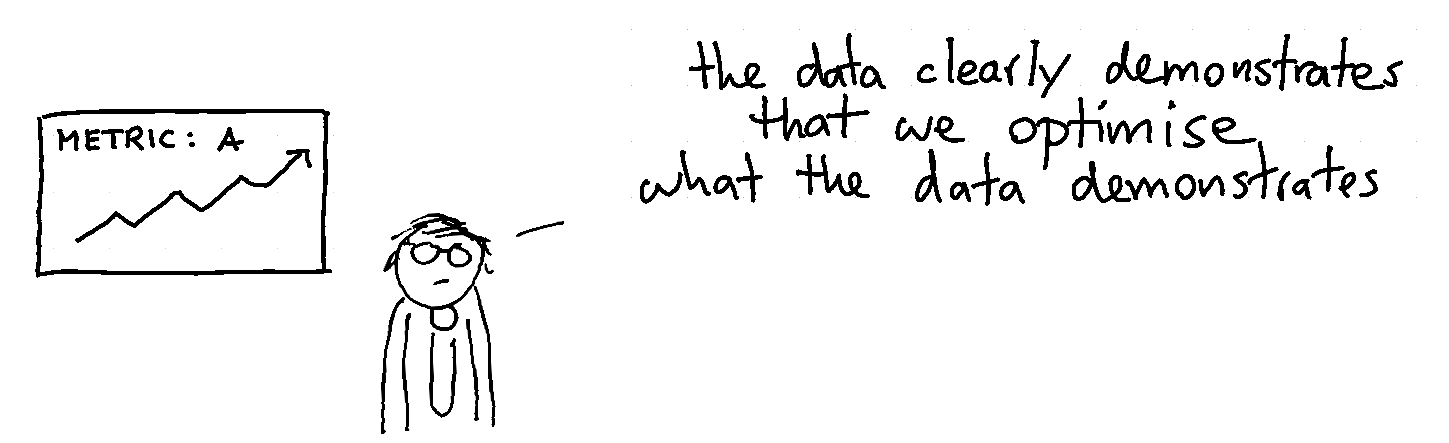 METRIC: A
the data clearly demonstrates
that we optimise
what the data demonstrates